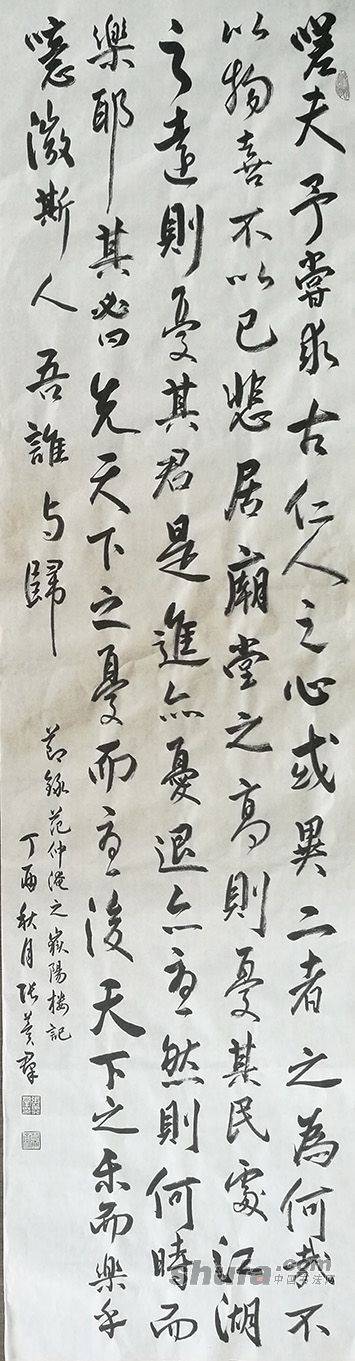 嗟夫予嘗求古仁人之心或異二者之為何哉不
以物喜不以己悲居廟堂之高則憂其民處江湖
之遠則憂其君是進亦憂退亦憂然則何時而
樂耶其必曰先天下之憂而憂後天下之乐而樂乎
噫微斯人吾誰与歸
節錄范仲淹之嶽陽楼記
丁酉秋月张
shufa.com
中国书法网